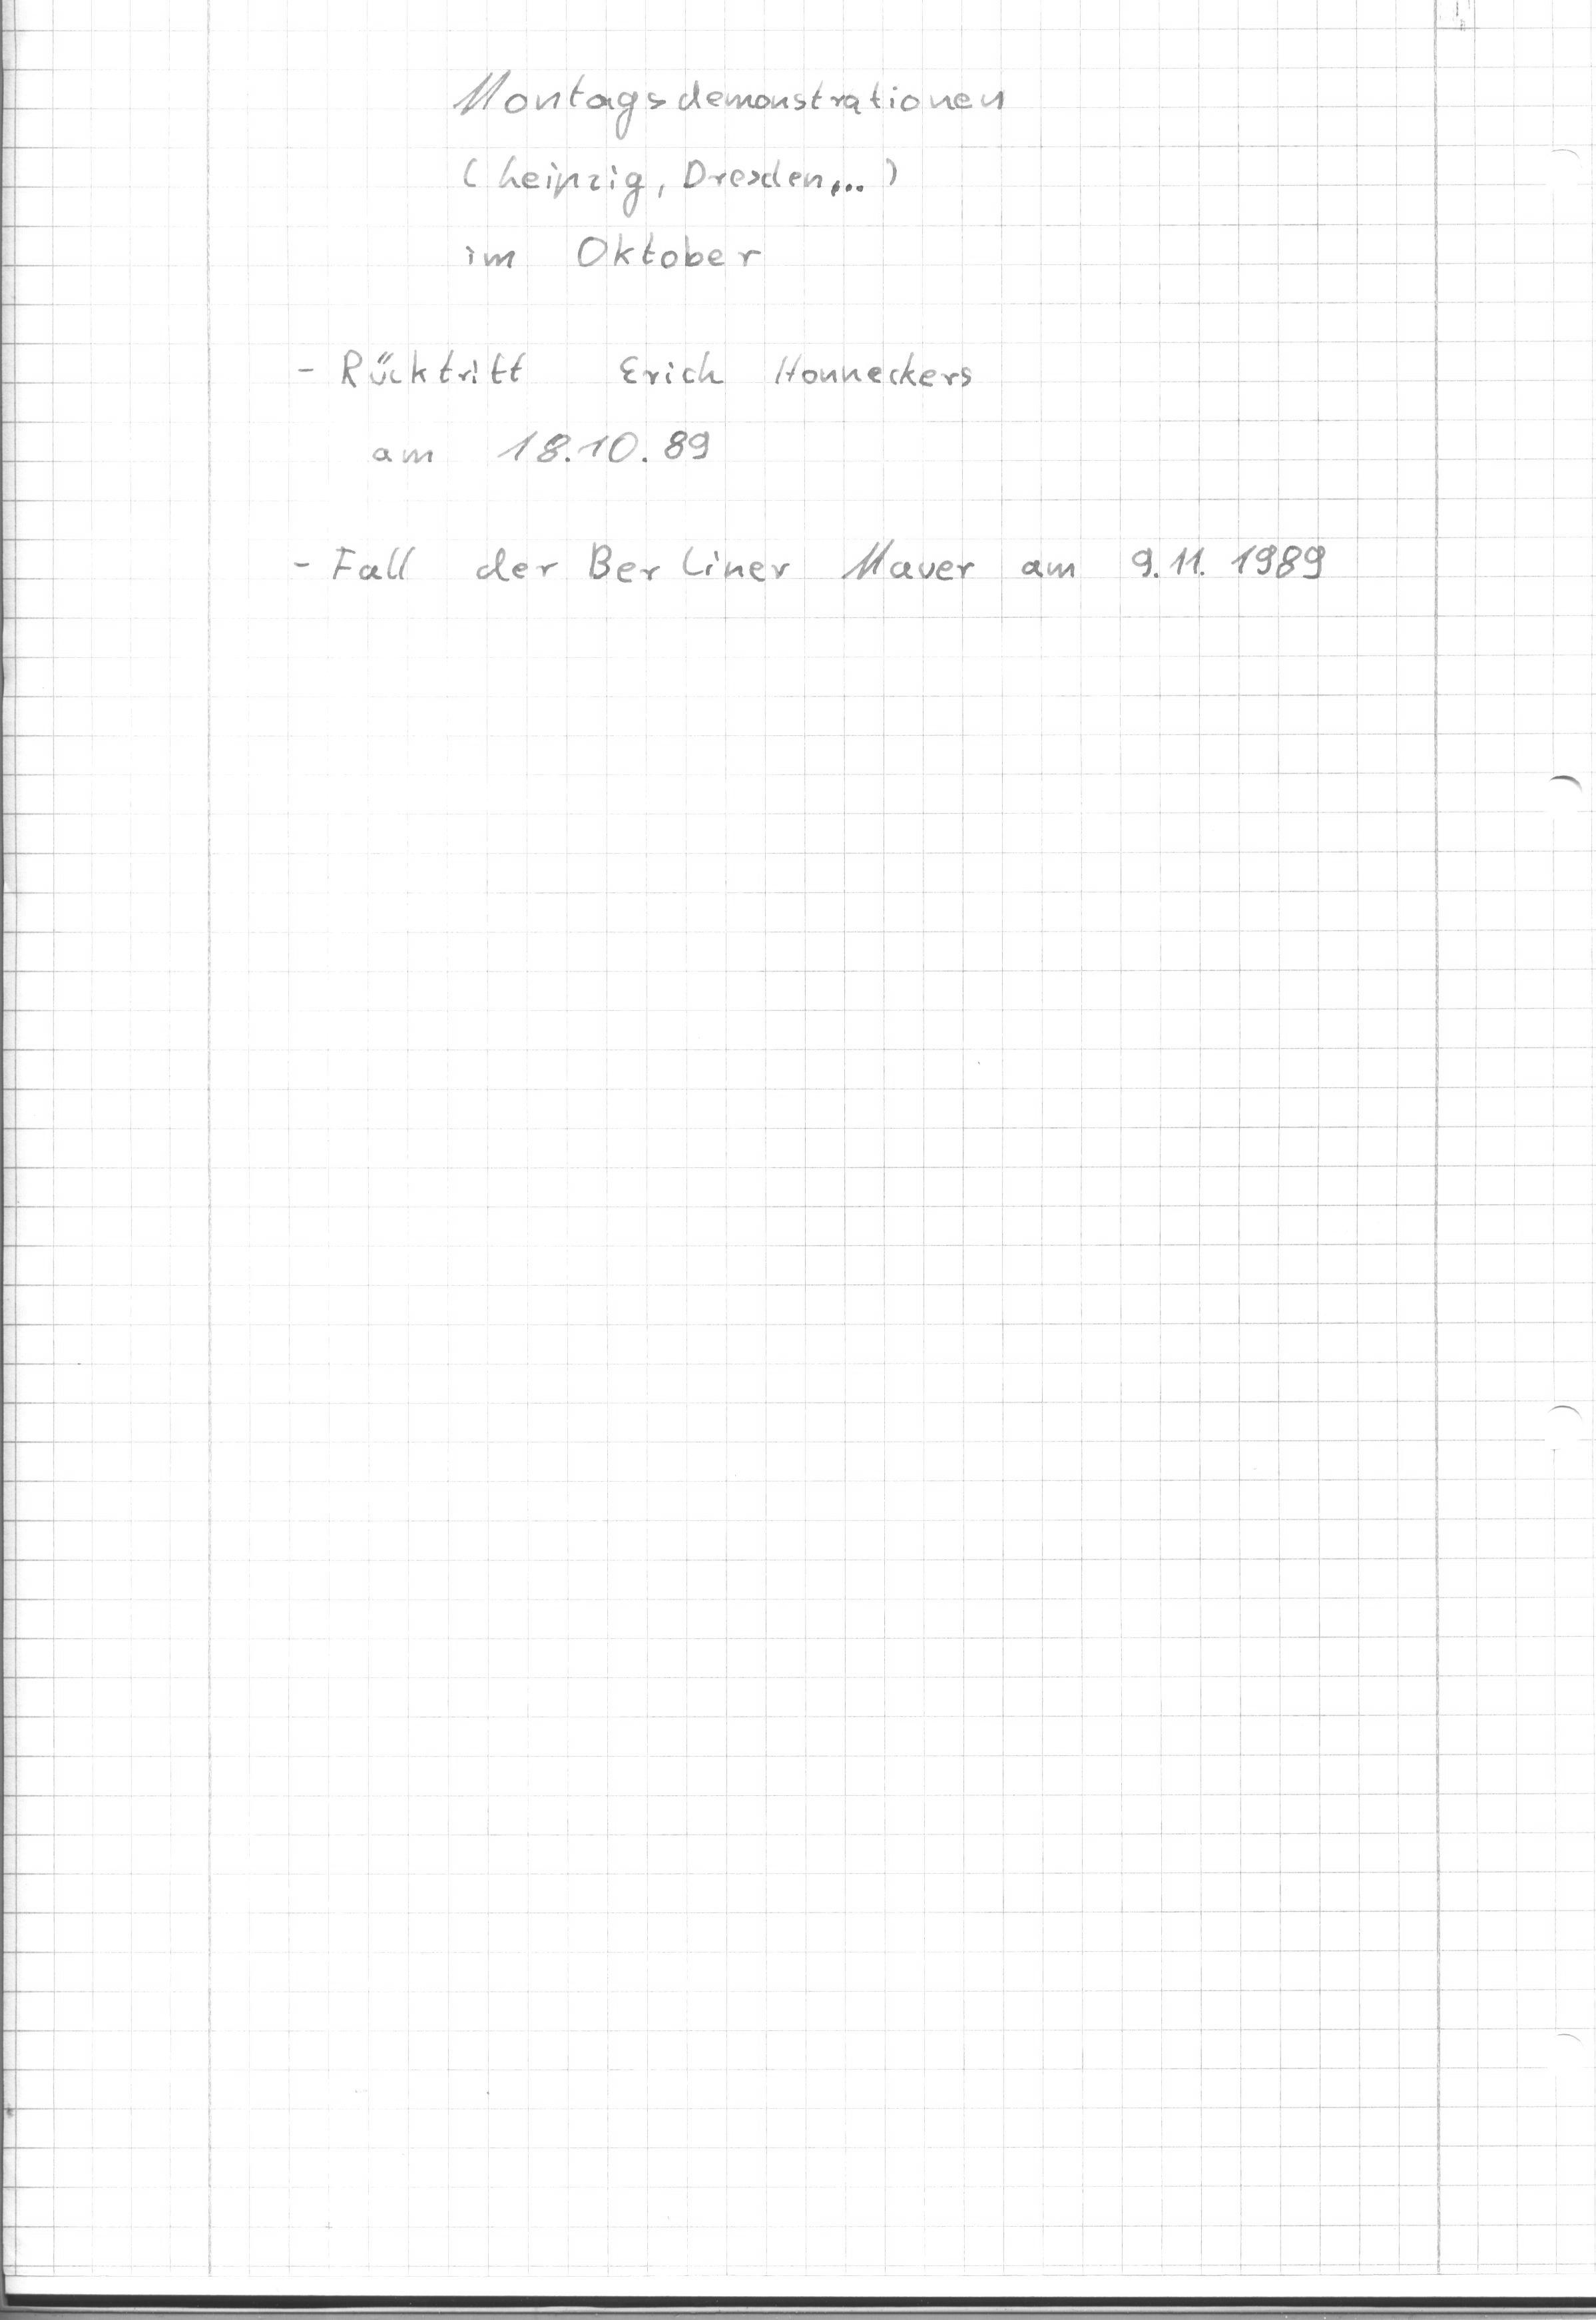 Montagsdemonstrationen
(Leipzig, Dresden,...)
im Oktober
- Rücktritt Erich Honneckers
am 18.10.89
- Fall der Berliner Mauer am 9.11.1989